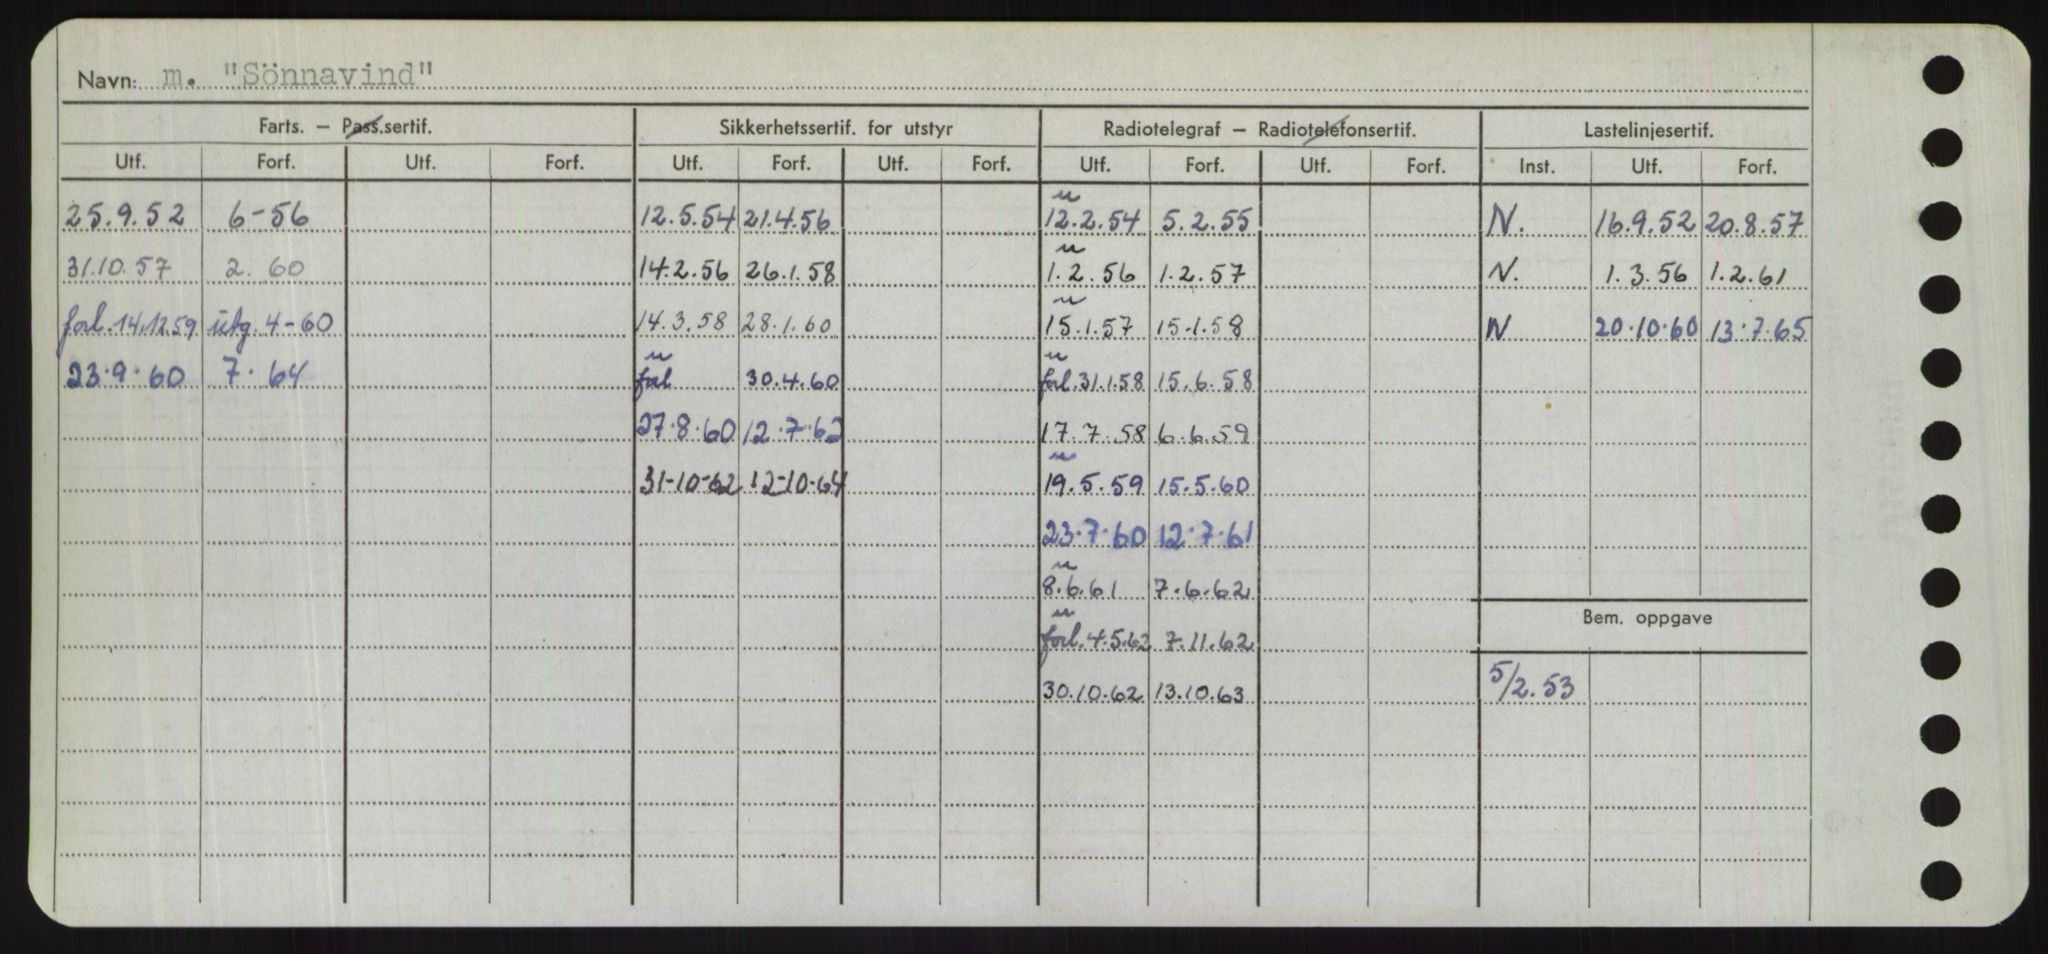 Navn: m. "Sönnavind"
Farts. – Pass.sertif. Sikkerhetssertif. for utstyr Radiotelegraf – Radiotelefonsertif. Lastelinjesertif.
Utf. Forf. Utf. Forf. Utf. Forf. Utf. Forf. Utf. Forf. Utf. Forf. Inst. Utf. Forf.
u
25.9.52 6-56 12.5.54 21.4.56 12.2.54 5.2.55 N. 16.9.52 20.8.57
u
31.10.57 2. 60 14.2.56 26.1.58 1.2.56 1.2.57 N. 1.3.56 1.2.61
u
forl. 14.12.59 utg. 4-60 14.3.58 28.1.60 15.1.57 15.1.58 N 20.10.60 13.7.65
u u
23.9.60 7.64 forl 30.4.60 forl. 31.1.58 15.6.58
27.8.60 12.7.62 17.7.58 6.6.59
u
31-10-62 12-10-64 19.5.59 15.5.60
23.7.60 12.7.61
u
8.6.61 7.6.62
Bem. oppgave
u
forl. 4.5.62 7.11.62
30.10.62 13.10.63 5/2.53